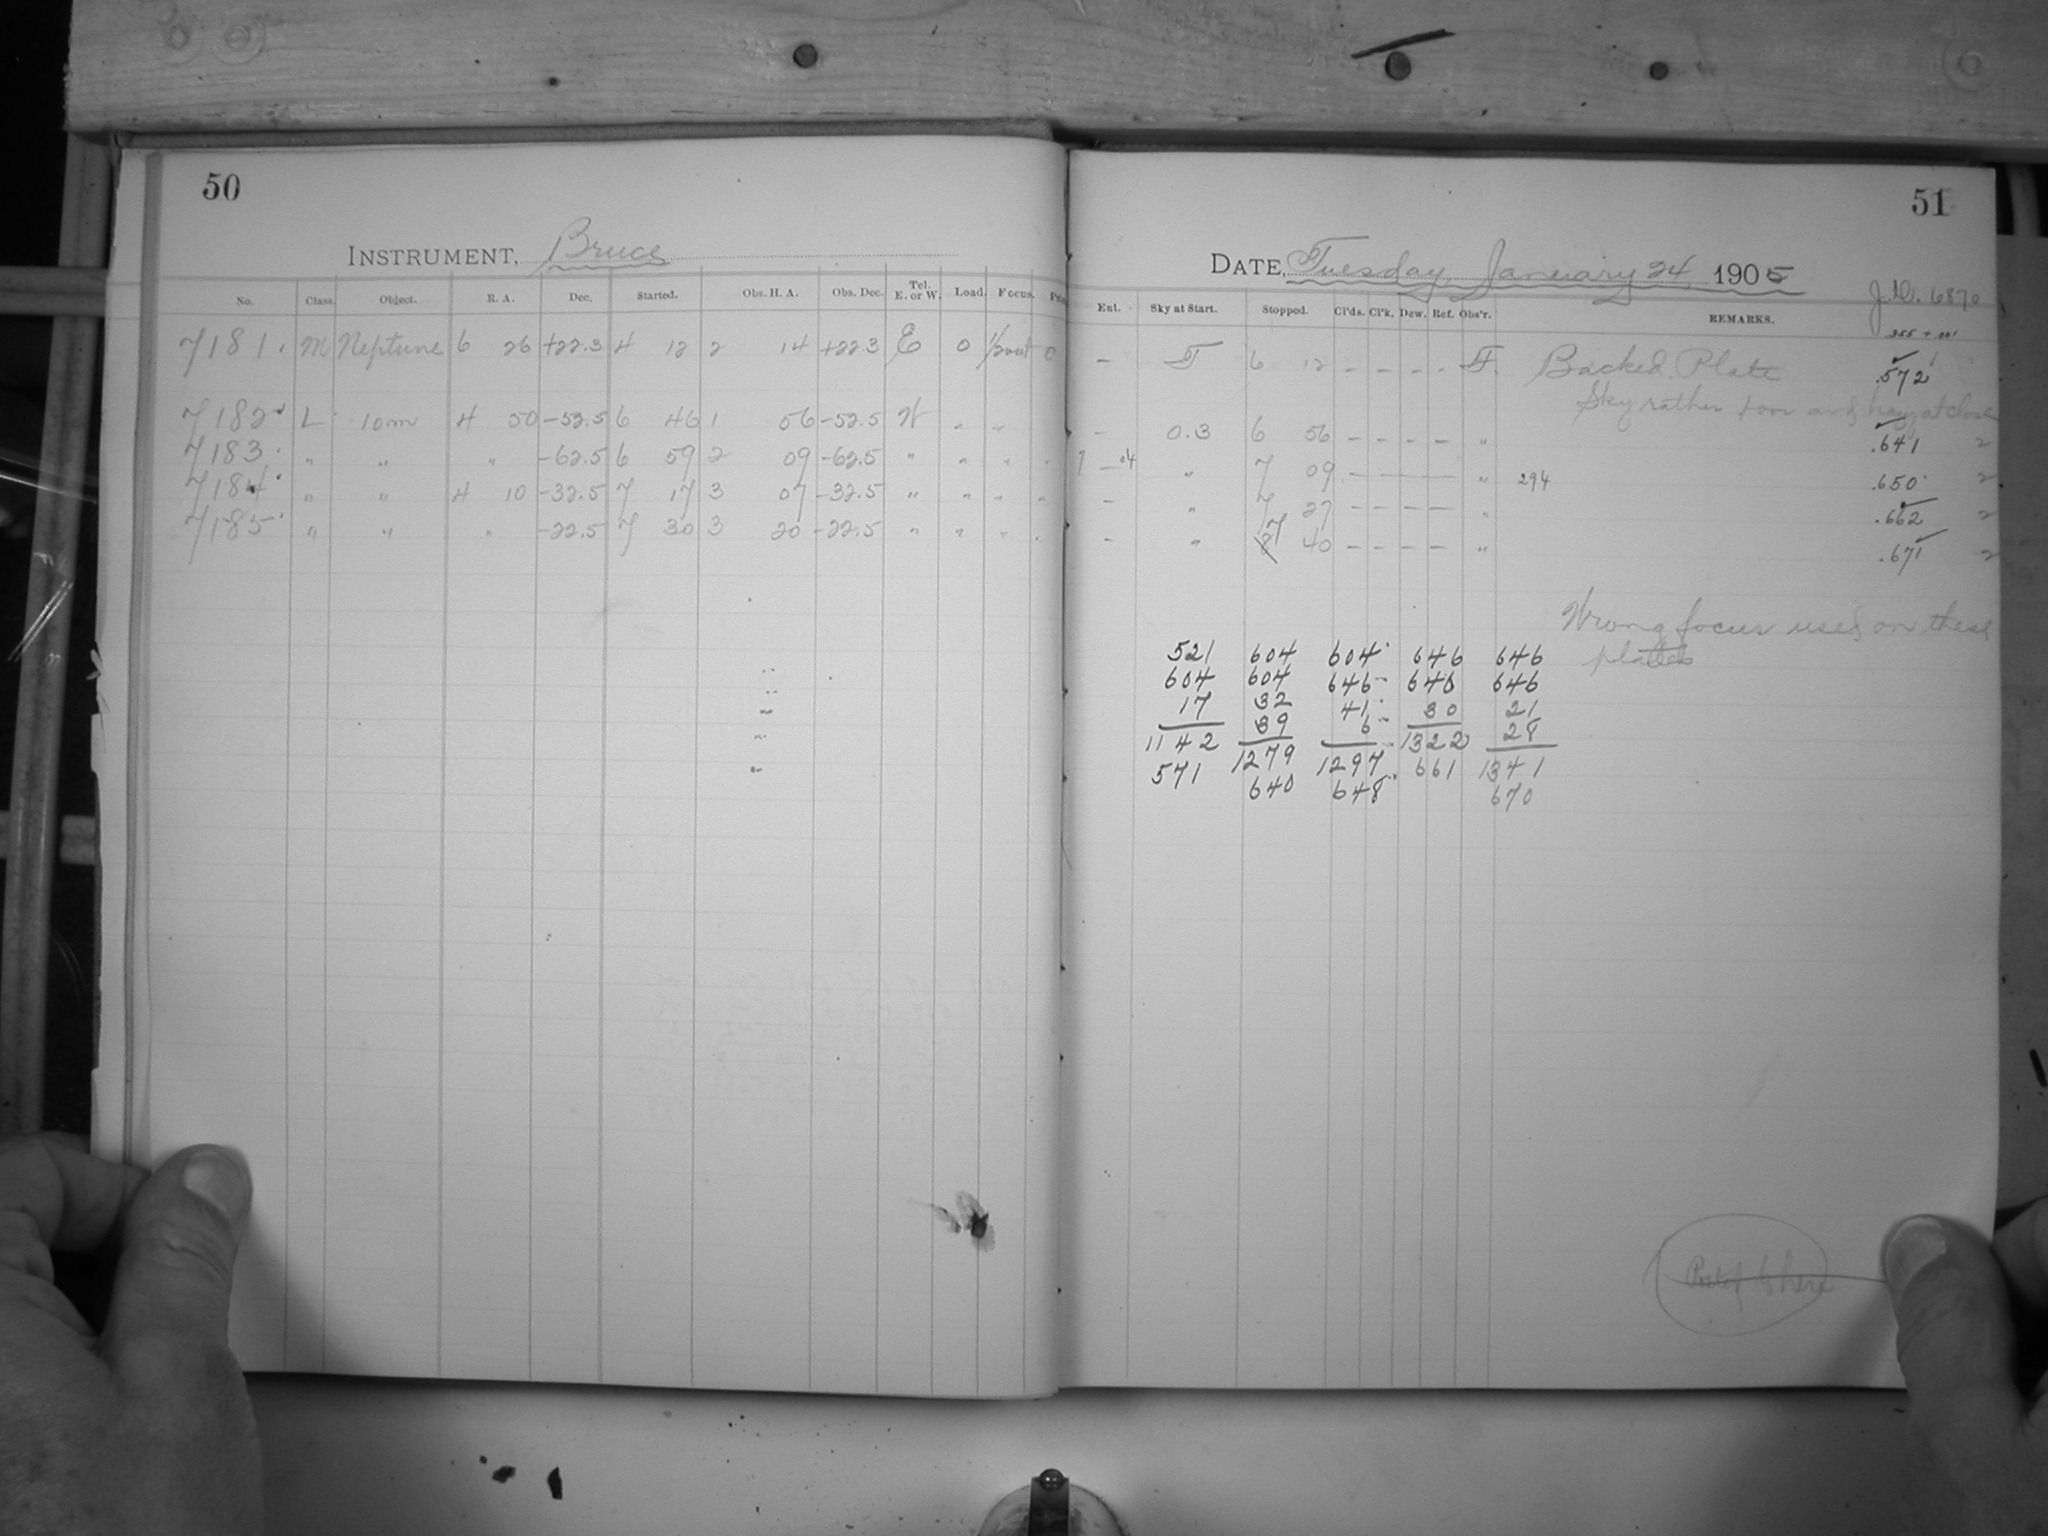 50
INSTRUMENT, Bruce
No. Class. Object. R. A. Dec. Started. Obs. H. A. Obs. Dec. Tel. E. or W. Load. Focus.
7181. M Neptune 6 26 +22.3 4 12 2 14 +22.3 E 0 0
7182 L 10m 4 50 -52.5 6 46 1 56 -52.5 W " "
7183 " " " -62.5 6 59 2 09 -62.5 " " " "
7184 " " 4 10 -32.5 7 17 3 07 -32.5 " " " "
7185 " " " -22.5 7 30 3 20 -22.5 " " " "
51
DATE, Tuesday, January 24, 1905
J.D. 6870
Ent. Sky at Start. Stopped. Cl'ds. Cl'k. Dew. Ref. Obs'r. REMARKS.
.355 + .001
— F 6 12 – – – – F. Backed Plate .572
Sky rather poor and hazy at close
— 0.3 6 56 – – – – " .641 2
7 — 04 " 7 09 — — — — " 294 .650 2
— " 7 27 – – – – " .662 2
— " 8 7 40 – – – – " .671 2
Wrong focus used on these
plates
521 604 604 646 646
604 604 646 646 646
17 32 41 30 21
39 6 28
1142 1279 1297 1322 1341
571 640 648 661 670